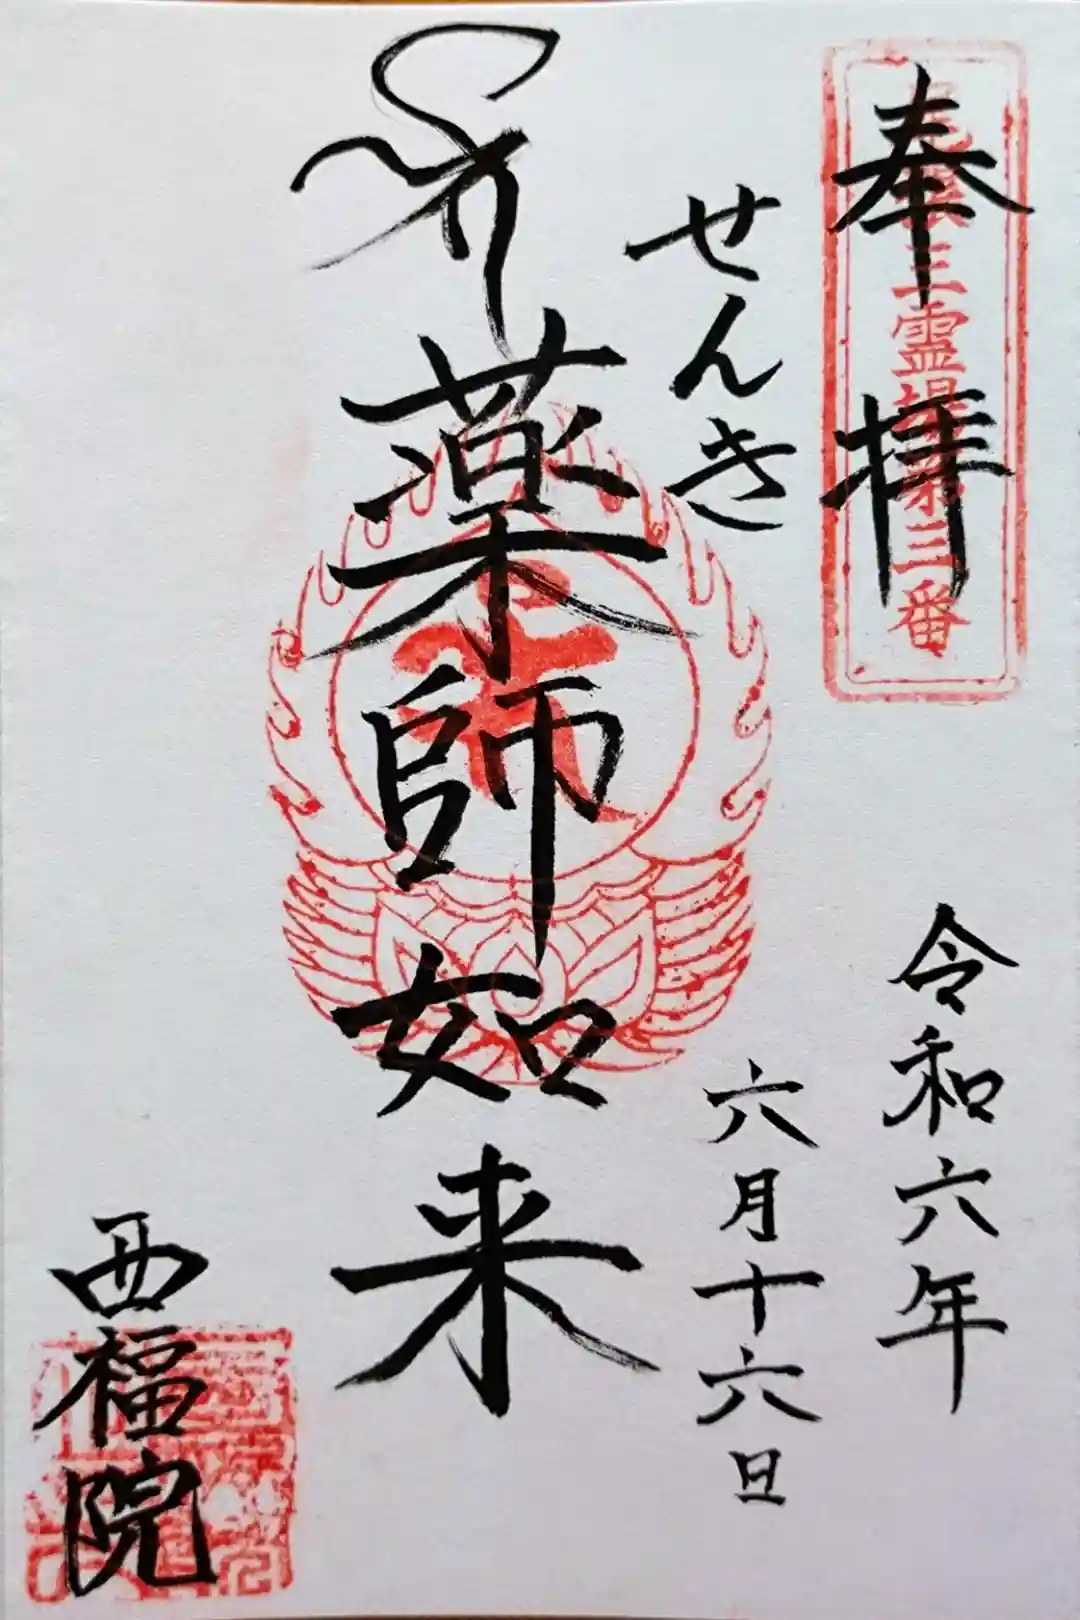 奉拝
三霊場第三番
令和六年
せんき
六月十六日
薬師如来
西福院